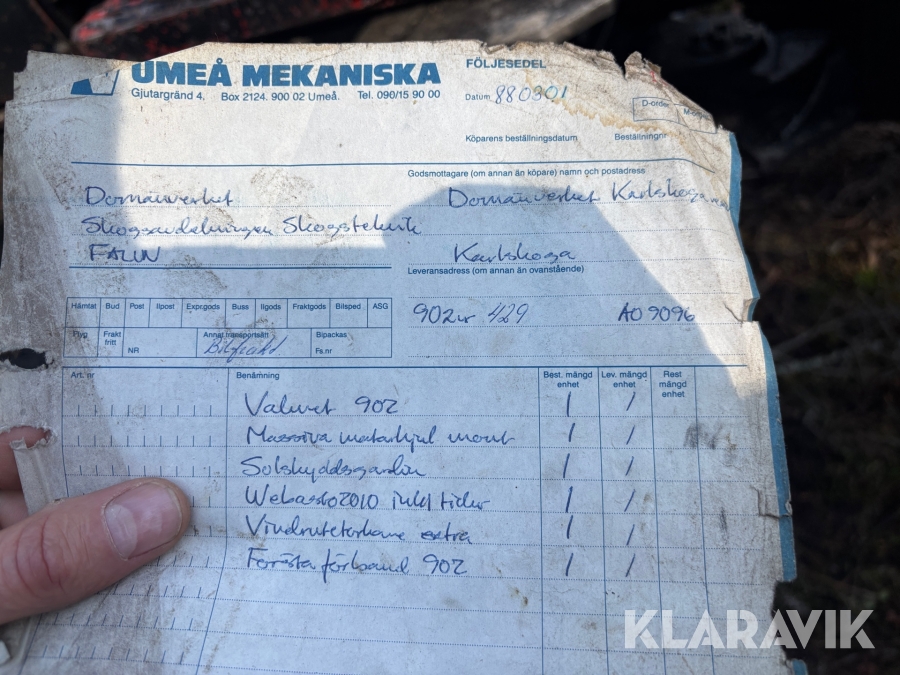 UMEÅ MEKANISKA
Gjutargränd 4. Box 2124. 900 02 Umeå. Tel. 090/15 90 00
FÖLJESEDEL
Datum 880301
D-order
Köparens beställningsdatum Beställningnr
Godsmottagare (om annan än köpare) namn och postadress
Domänverket
Skogsavdelningen Skogsteknik
FALUN
Domänverket Karlskoga
Karlskoga
Leveransadress (om annan än ovanstående)
902 nr 429 AO 9096
Hämtat Bud Post Ilpost Expr.gods Buss Ilgods Fraktgods Bilsped ASG
Flyg Frakt fritt NR Annat transportsätt Bipackas Fs.nr
Bilfrakt
Art. nr Benämning Best. mängd enhet Lev. mängd enhet Rest mängd enhet
Valmet 902 1 1
Massiva matarhjul mont 1 1
Solskyddsgardin 1 1
Webasto 2010 inkl tidur 1 1
Vindrutetorkare extra 1 1
Första förband 902 1 1
KLARAVIK